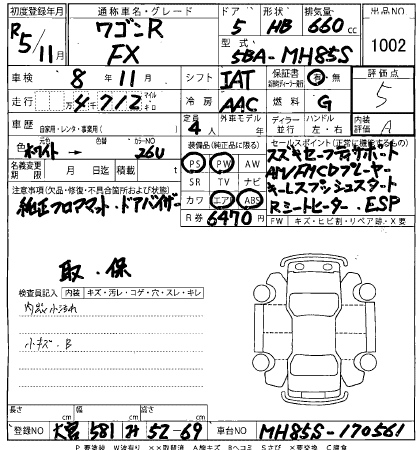 初度登録年月 通称車名・グレード ドア 形状 排気量 出品NO
R5/11月 ワゴンR FX 5 HB 660cc 1002
型式 5BA-MH85S
車検 8年11月 シフト IAT 保証書 有・無 評価点
走行 4712 マイル キロ 冷房 AAC 燃料 G 5
車歴 自家用・レンタ・事業用( ) 定員 4人 外車モデル 年 ディーラー 並行 ハンドル 左・右 内装評価 A
色 ホワイト 色替 カラーNO 26U 装備品(純正品に限る) セールスポイント(正常に機能するもの)
名義変更期限 月 日 積載 t
PS PW AW
SR TV ナビ
カワ エア ABS
R券 6470円
スズキセーフティサポート
AM/FMCDプレーヤー
キーレスプッシュスタート
Rミートヒーター. ESP
FW キズ・ヒビ割・リペア跡・X要
注意事項(欠品・修復・不具合箇所および状態)
純正フロアマット・ドアバイザー
取.保
検査員記入 内装 キズ・汚レ・コゲ・穴・スレ・キレ
内装小汚れ
小キズ.B
長さ cm 幅 cm 高さ cm
登録NO 大宮 581 み 52-69 車台NO MH85S-170561
P要塗装 W波有り ××取替済 A線キズ Bヘコミ Sさび ×要交換 C腐食